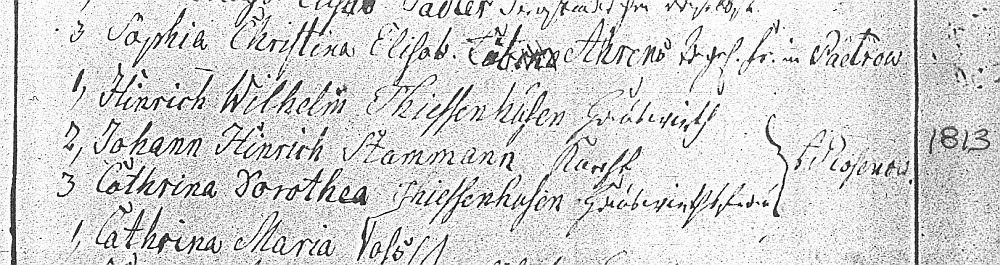 Elisab Sadler
3 Sophia Christina Elisab. Ahrens in Paetrow
1, Hinrich Wilhelm Thiessenhusen Hauswirth
2, Johann Hinrich Stammann Knecht
3 Cathrina Dorothea Thiessenhusen Hauswirthsfrau
z. Rosenow.
1813
1, Cathrina Maria Voss